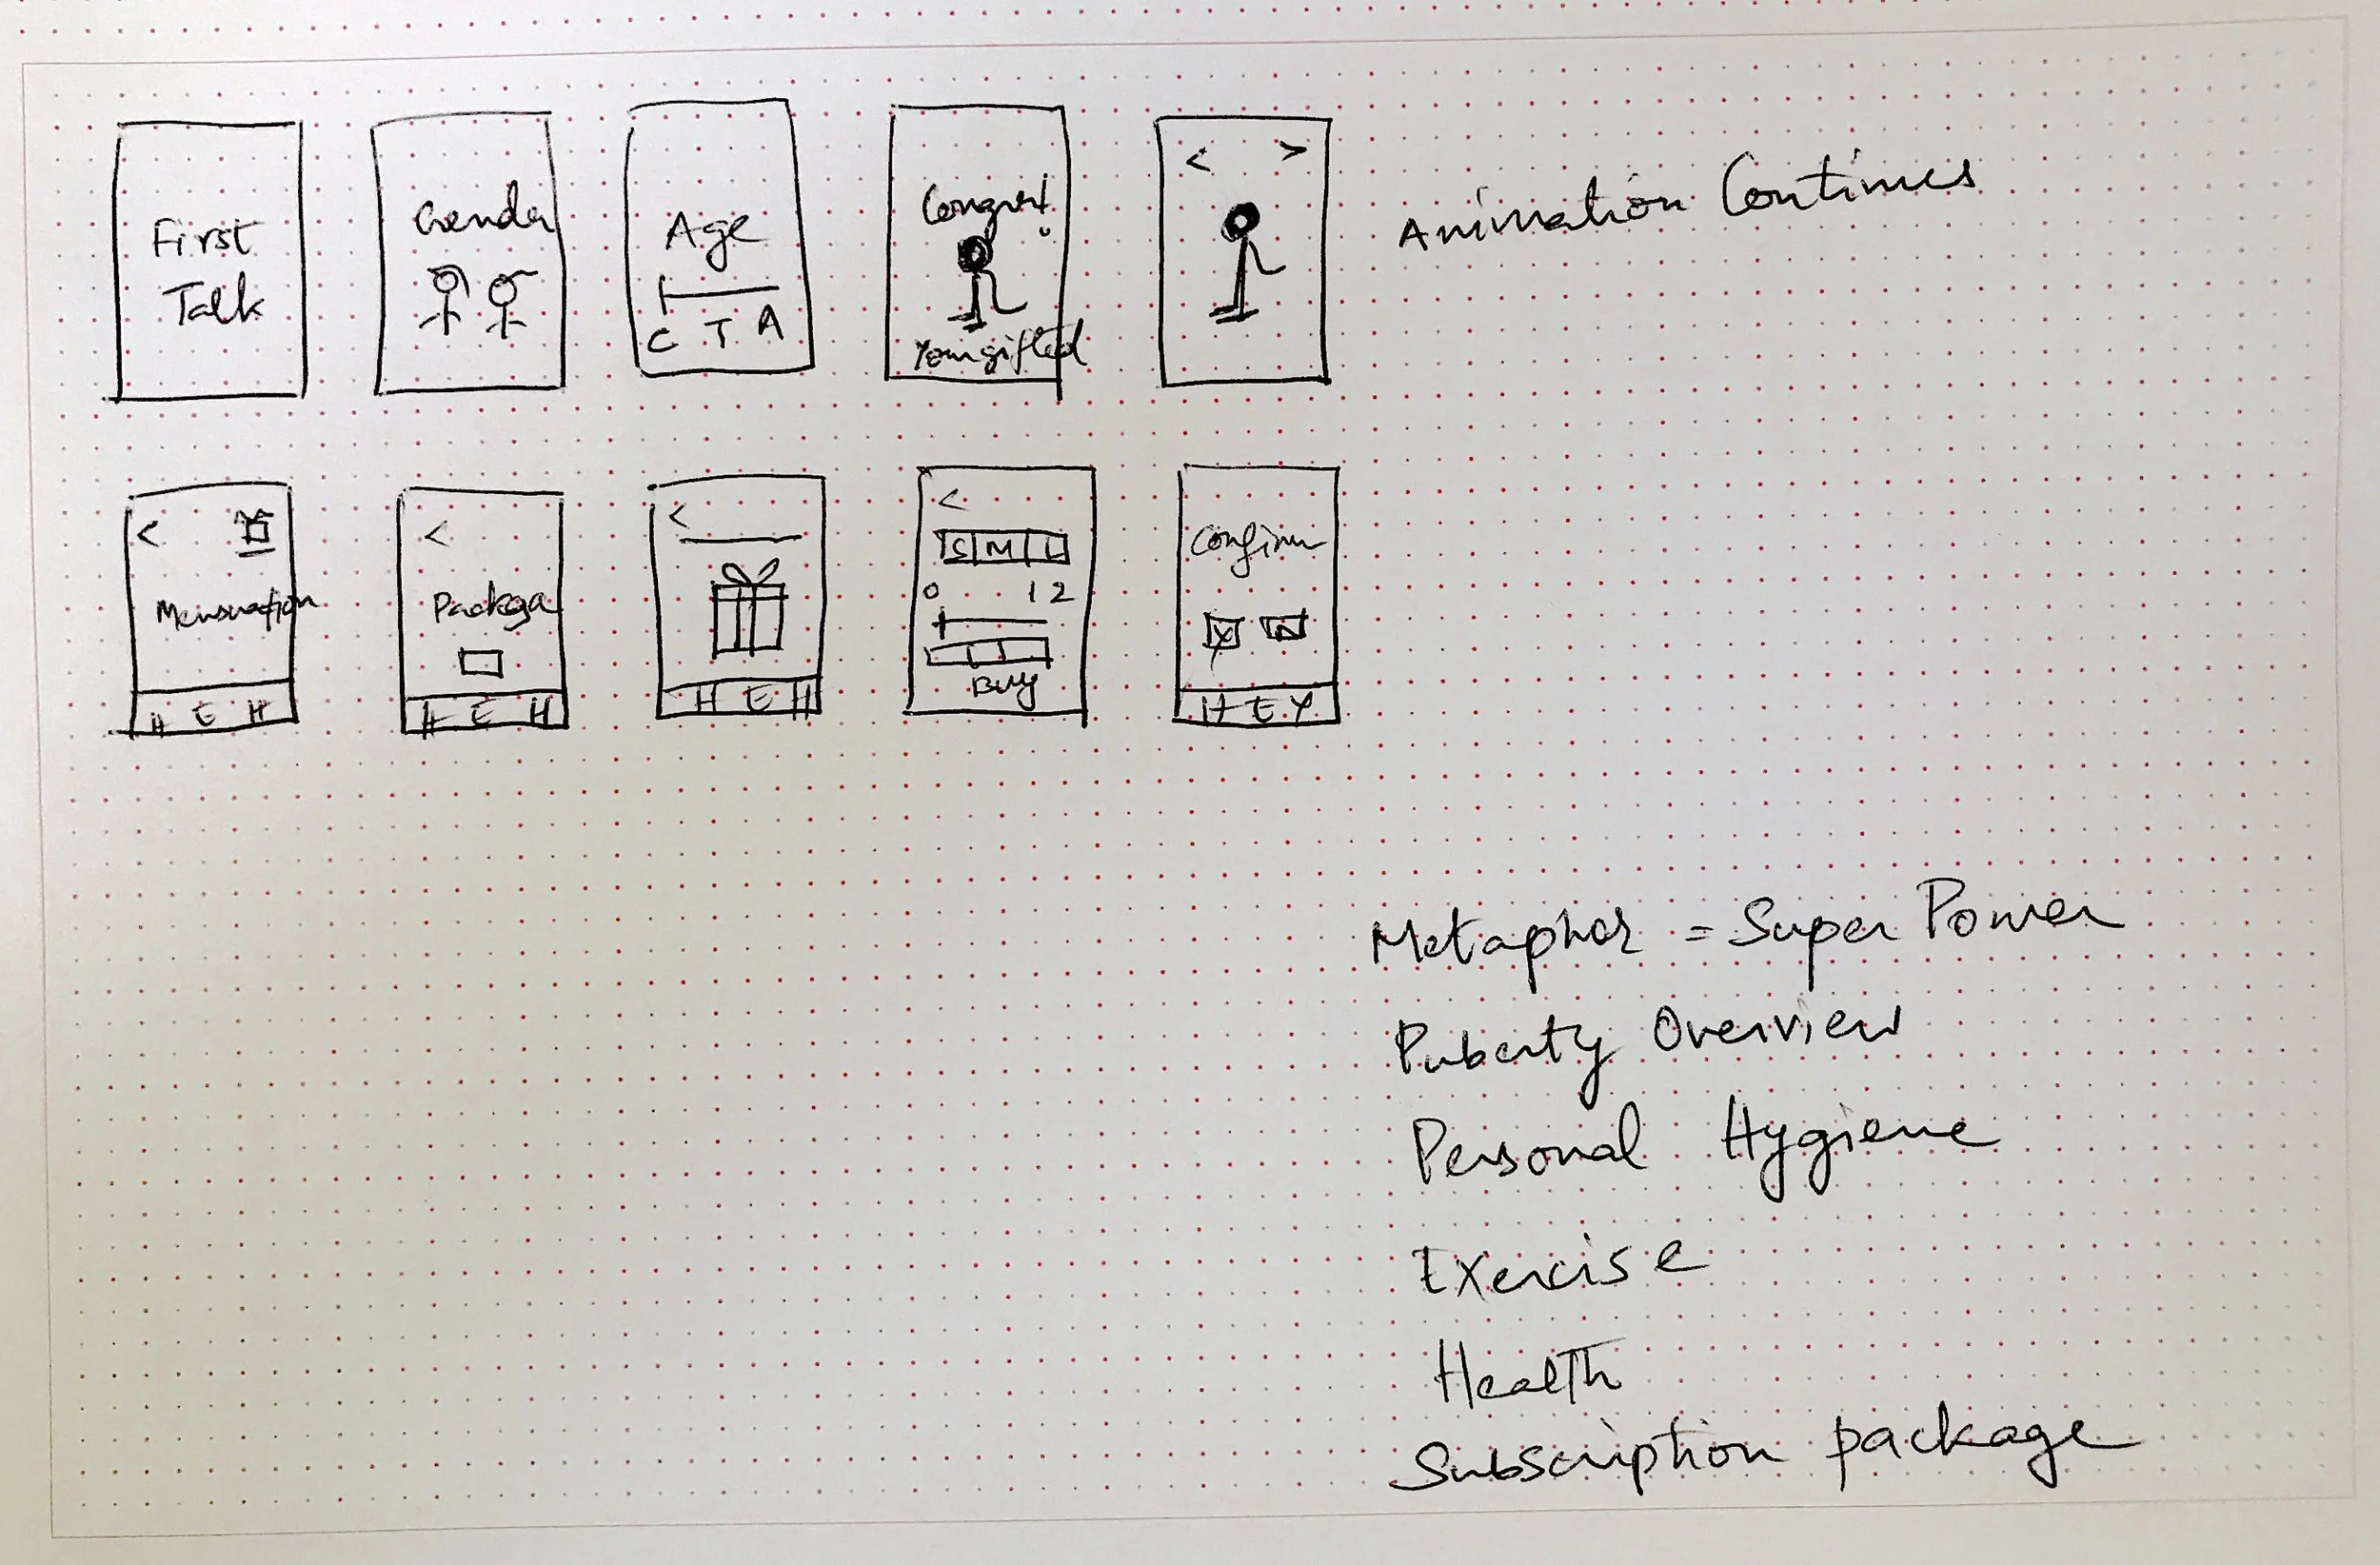 First
Talk
Gender
Age
C T A
Congrats!
You gifted
< >
Animation Continues
<
Mensuration
H E H
<
Package
H E H
<
H E H
<
S M L
0 12
Buy
Confirm
Y N
H E Y
Metaphor = Super Power
Puberty Overview
Personal Hygiene
Exercise
Health
Subscription package